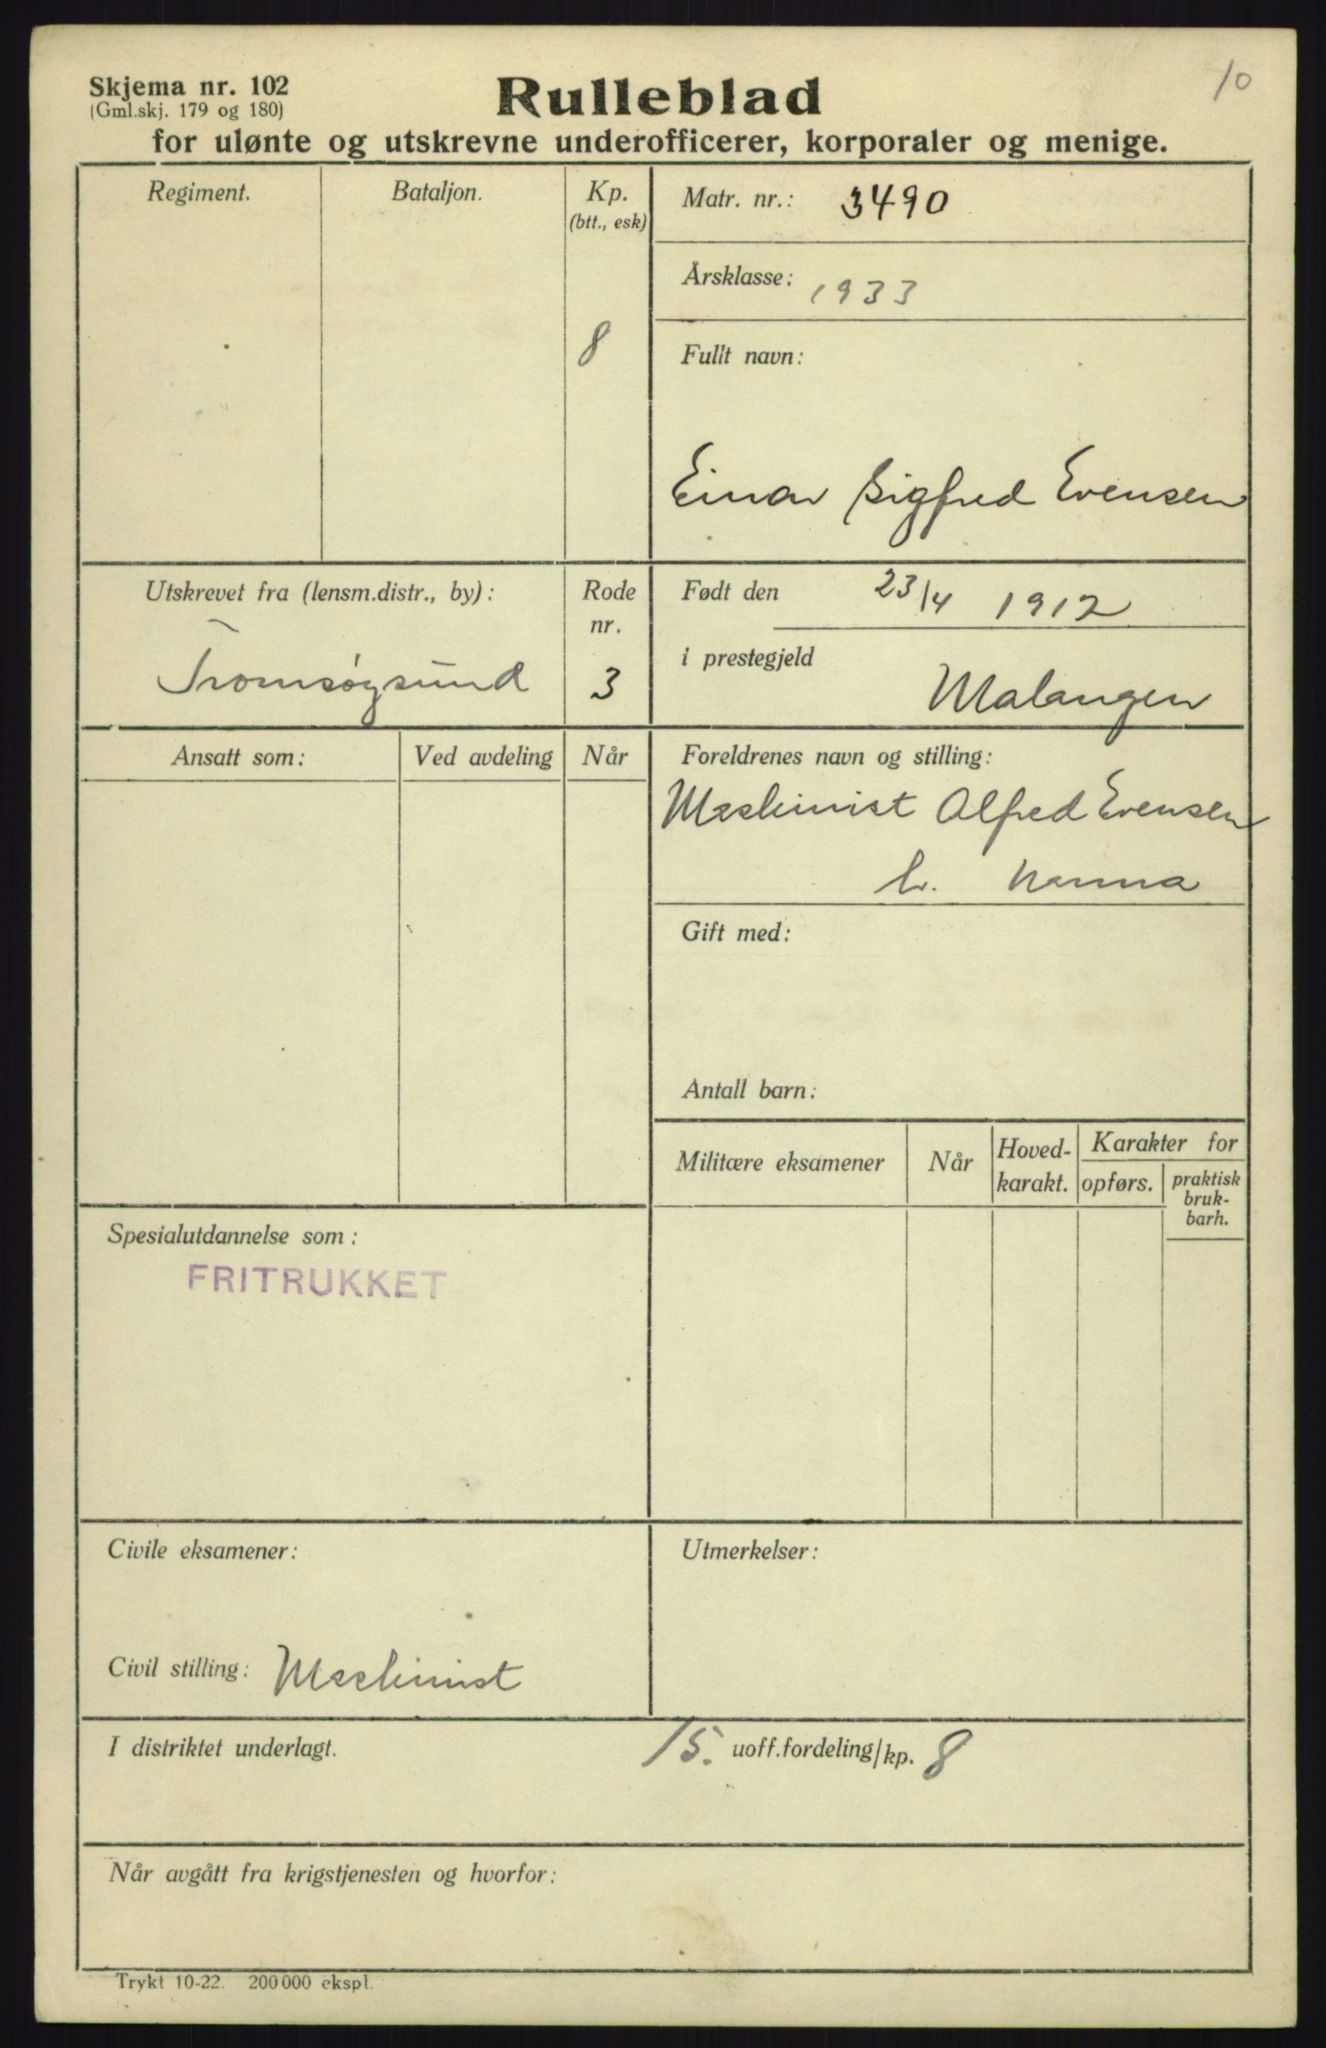 Skjema nr. 102
(Gml.skj. 179 og 180)
10
Rulleblad
for ulønte og utskrevne underofficerer, korporaler og menige.
Regiment.
Bataljon.
Kp.
(btt., esk)
8
Matr. nr.: 3490
Årsklasse: 1933
Fullt navn:
Einar Sigfred Evensen
Utskrevet fra (lensm.distr., by):
Tromsøysund
Rode
nr.
3
Født den 23/4 1912
i prestegjeld
Malangen
Ansatt som:
Ved avdeling
Når
Foreldrenes navn og stilling:
Maskinist Alfred Evensen
h. Nanna
Gift med:
Antall barn:
Militære eksamener
Når
Hoved-
karakt.
Karakter for
opførs.
praktisk
bruk-
barh.
Spesialutdannelse som:
FRITRUKKET
Civile eksamener:
Civil stilling: Maskinist
Utmerkelser:
I distriktet underlagt. 15. uoff.fordeling/kp. 8
Når avgått fra krigstjenesten og hvorfor:
Trykt 10-22. 200 000 ekspl.